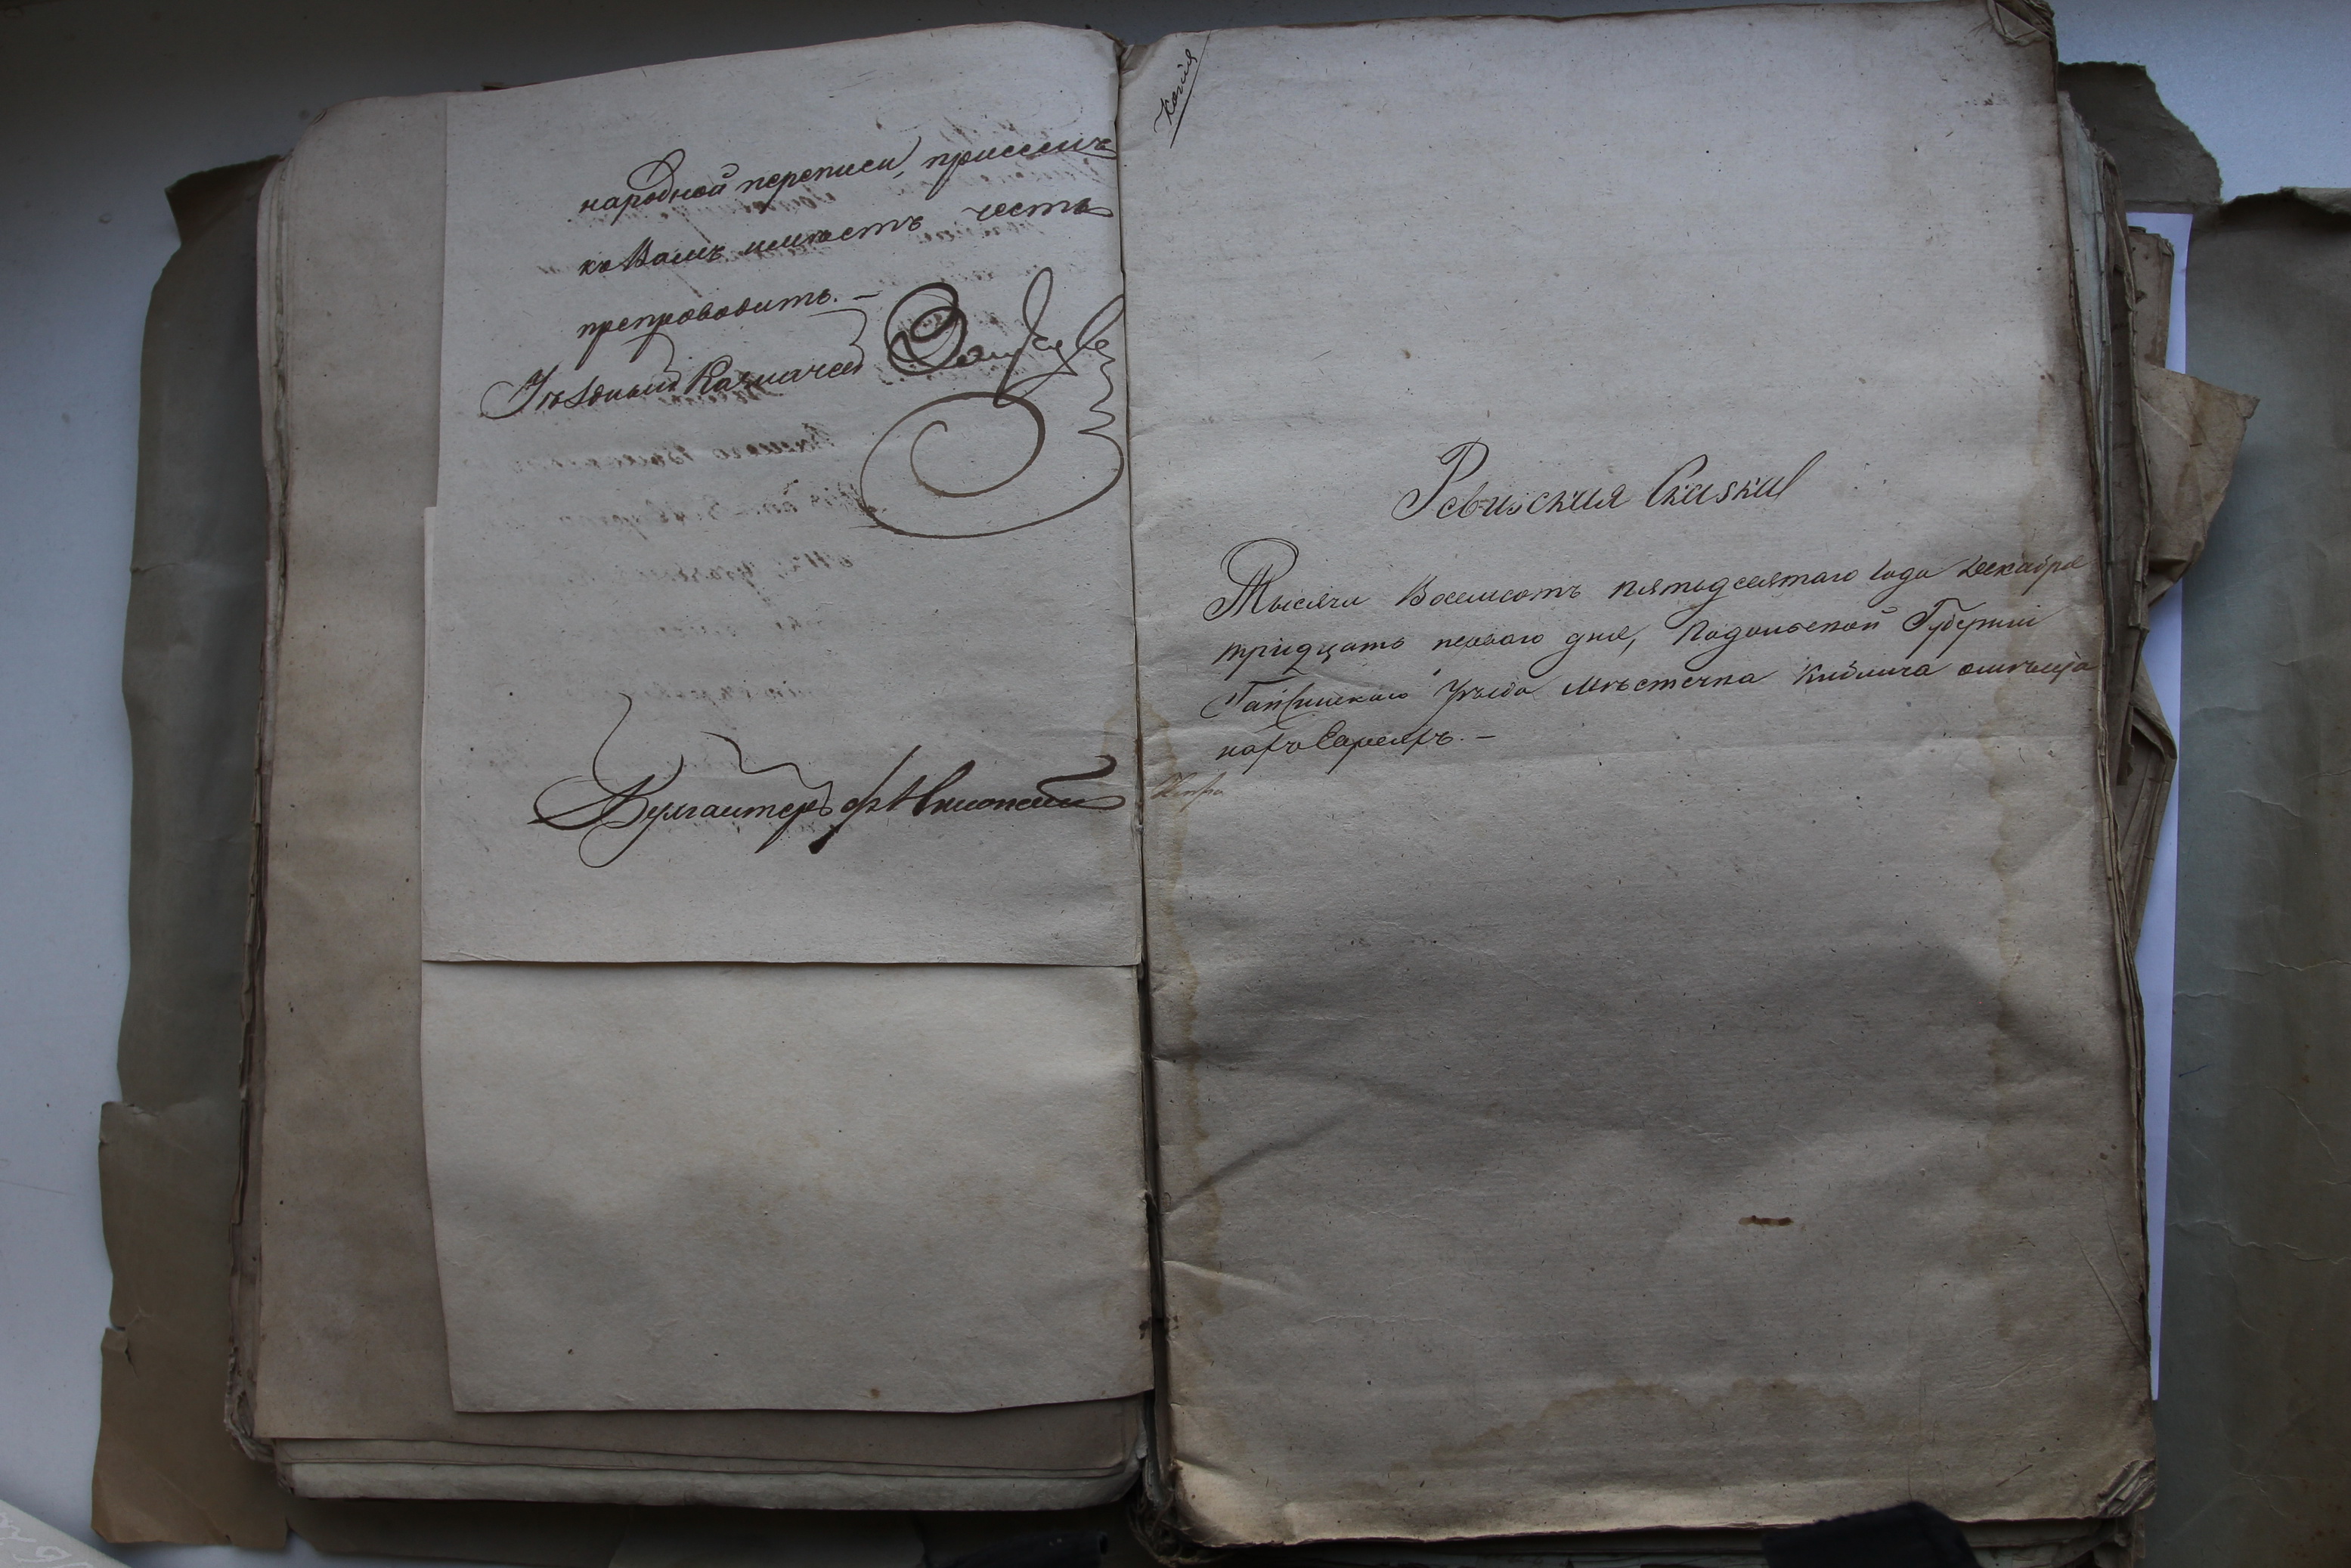 народной переписи, при семъ
къ Вамъ имѣетъ честь
препроводить. —
Уѣздный Казначей
Бухгалтеръ
Копія
Ревизскія Сказки
Тысяча Восемсотъ пятьдесятаго года Декабря
тридцать перваго дня, Подольской Губерніи
Гайсинскаго Уѣзда Мѣстечка Кублича о мѣща
нахъ Евреяхъ. —